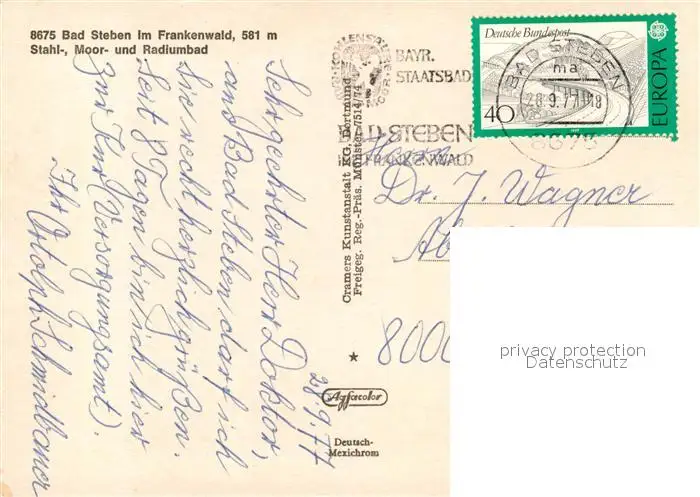 8675 Bad Steben im Frankenwald, 581 m
Stahl-, Moor- und Radiumbad
28.9.77
Sehr geehrter Herr Doktor,
aus Bad Steben darf ich
Sie recht herzlich grüßen.
Seit 8 Tagen bin ich hier
zur Kur (Versorgungsamt).
Ihr Adolph Schmidbauer
Cramers Kunstanstalt KG, Dortmund
Freigeg. Reg.-Präs. Münster 7514/74
Agfacolor
Deutsch-
Mexichrom
MOOR
BAYR.
STAATSBAD
BAD STEBEN
FRANKENWALD
Deutsche Bundespost
40
EUROPA
BAD STEBEN
ma
28.9.77-18
8675
Herrn
Dr. J. Wagner
8000
privacy protection
Datenschutz